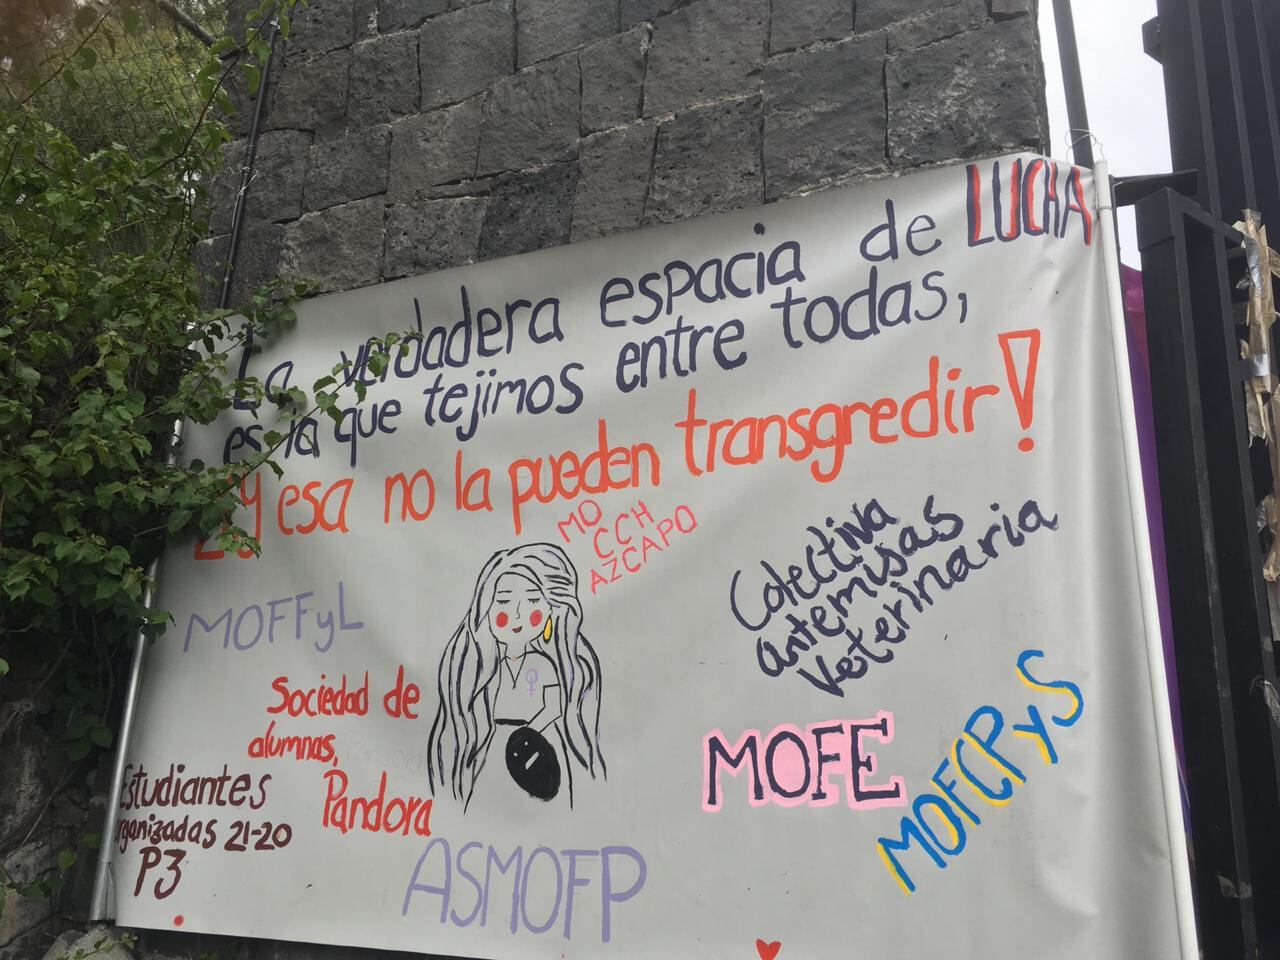 La verdadera espacia de LUCHA
es la que tejimos entre todas,
¡y esa no la pueden transgredir!
MO
CCH
AZCAPO
Colectiva
Antemisas
Veterinaria
MOFFyL
Sociedad de
alumnas,
Pandora
Estudiantes
organizadas 21-20
P3
MOFE
MOFCPyS
ASMOFP